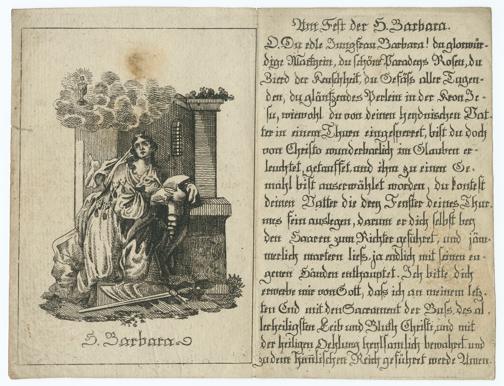 S. Barbara
Am Fest der H. Barbara.
O. Du edle Jungfrau Barbara! du glorwür-
dige Martyrin, du schöne Paradeys Rosen, du
Zierd der Keuschheit, du Gefäss aller Tugen-
den, du gläntzendes Perlein in der Kron Je-
su, wiewohl du von deinen heydnischen Vat-
ter in einem Thurn eingesperret, bist du doch
von Christo wunderbarlich im Glauben er-
leuchtet, getauffet, und ihm zu einen Ge-
mahl bist auserwählet worden, du kontest
deinen Vatter die drey Fenster deines Thur-
nes fein auslegen, darum er dich selbst bey
den Haaren zum Richter geführet, und jäm-
merlich martern ließ, ja endlich mit seinen ei-
genen Händen enthauptet. Ich bitte dich
erwerbe mir von Gott, daß ich an meinem letz-
ten End mit den Sacrament der Buß, des al-
lerheiligsten Leib und Bluth Christi, und mit
der heiligen Oehlung heylsamlich bewahret und
zu dem himlischen Reich geführet werde Amen.